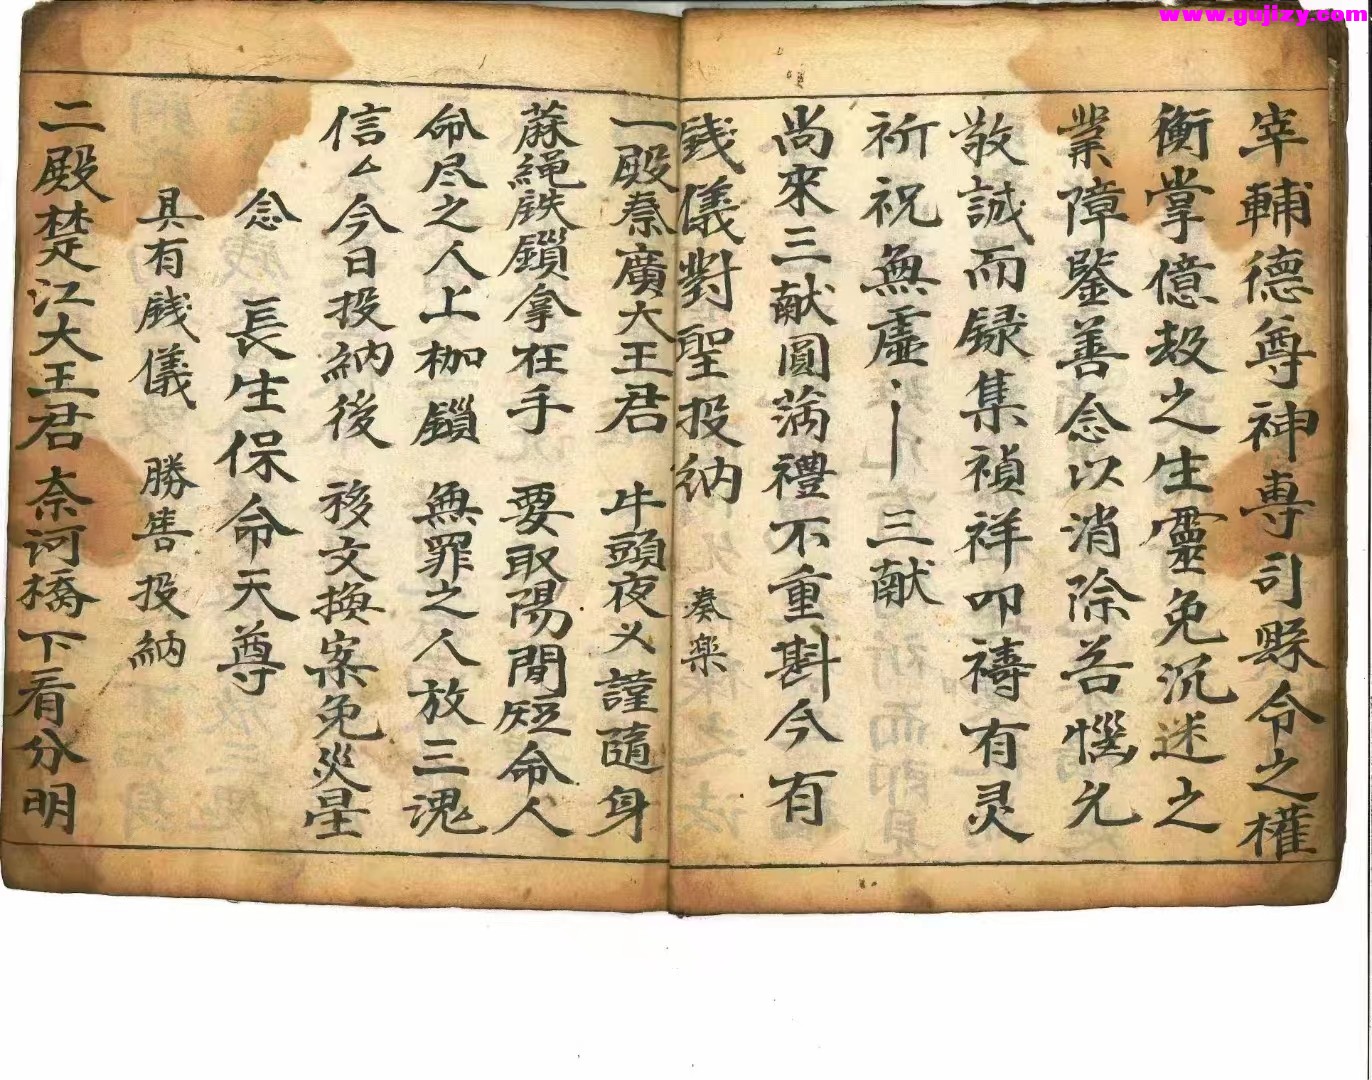 www.gujizy.com
宰輔德尊神專司縣令之權
衡掌億劫之生靈免沉迷之
業障鑒善念以消除苦惱允
敬誠而録集禎祥叩禱有灵
祈祝無虛 三献
尚來三献圓满禮不重斟今有
錢儀對聖投纳 奏樂
一殿秦廣大王君 牛頭夜乂謹隨身
蔴繩鉄鎖拿在手 要取陽間短命人
命尽之人上枷鎖 無罪之人放三魂
信厶今日投納後 移文換案免災星
念 長生保命天尊
具有錢儀 勝吿投納
二殿楚江大王君 奈河橋下看分明